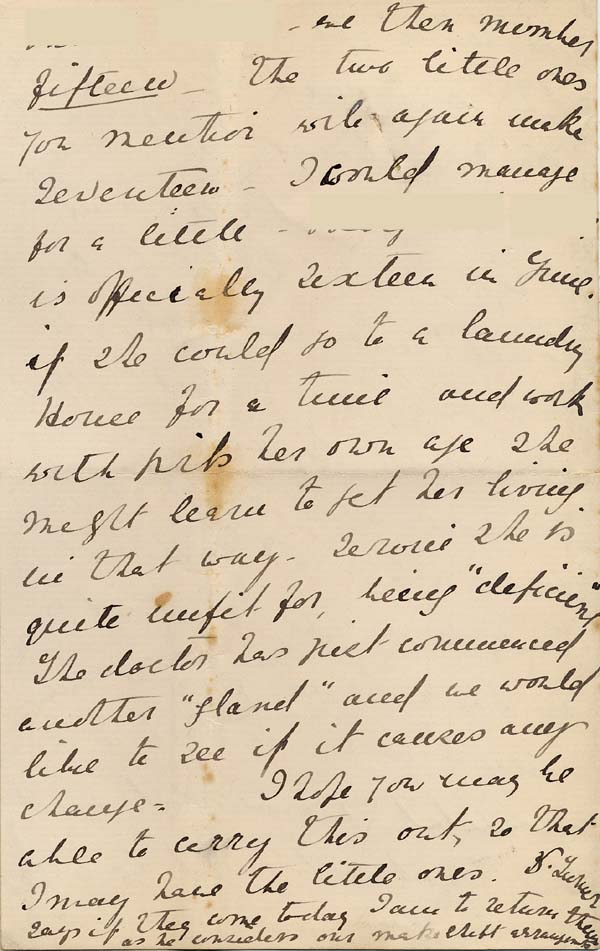 then number
fifteen - The two little ones
you mention will again make
Seventeen - I would manage
for a little -
is officially sixteen in June.
if she could go to a laundry
Home for a time and work
with girls her own age she
might learn to get her living
in that way - Service she is
quite unfit for, being "deficient"
The doctor has just commenced
another "gland" and we would
like to see if it causes any
change - I hope you may be
able to carry this out, so that
I may have the little ones. Dr. Turner
says if they come today I am to return them
as he considers our makeshift arrangements